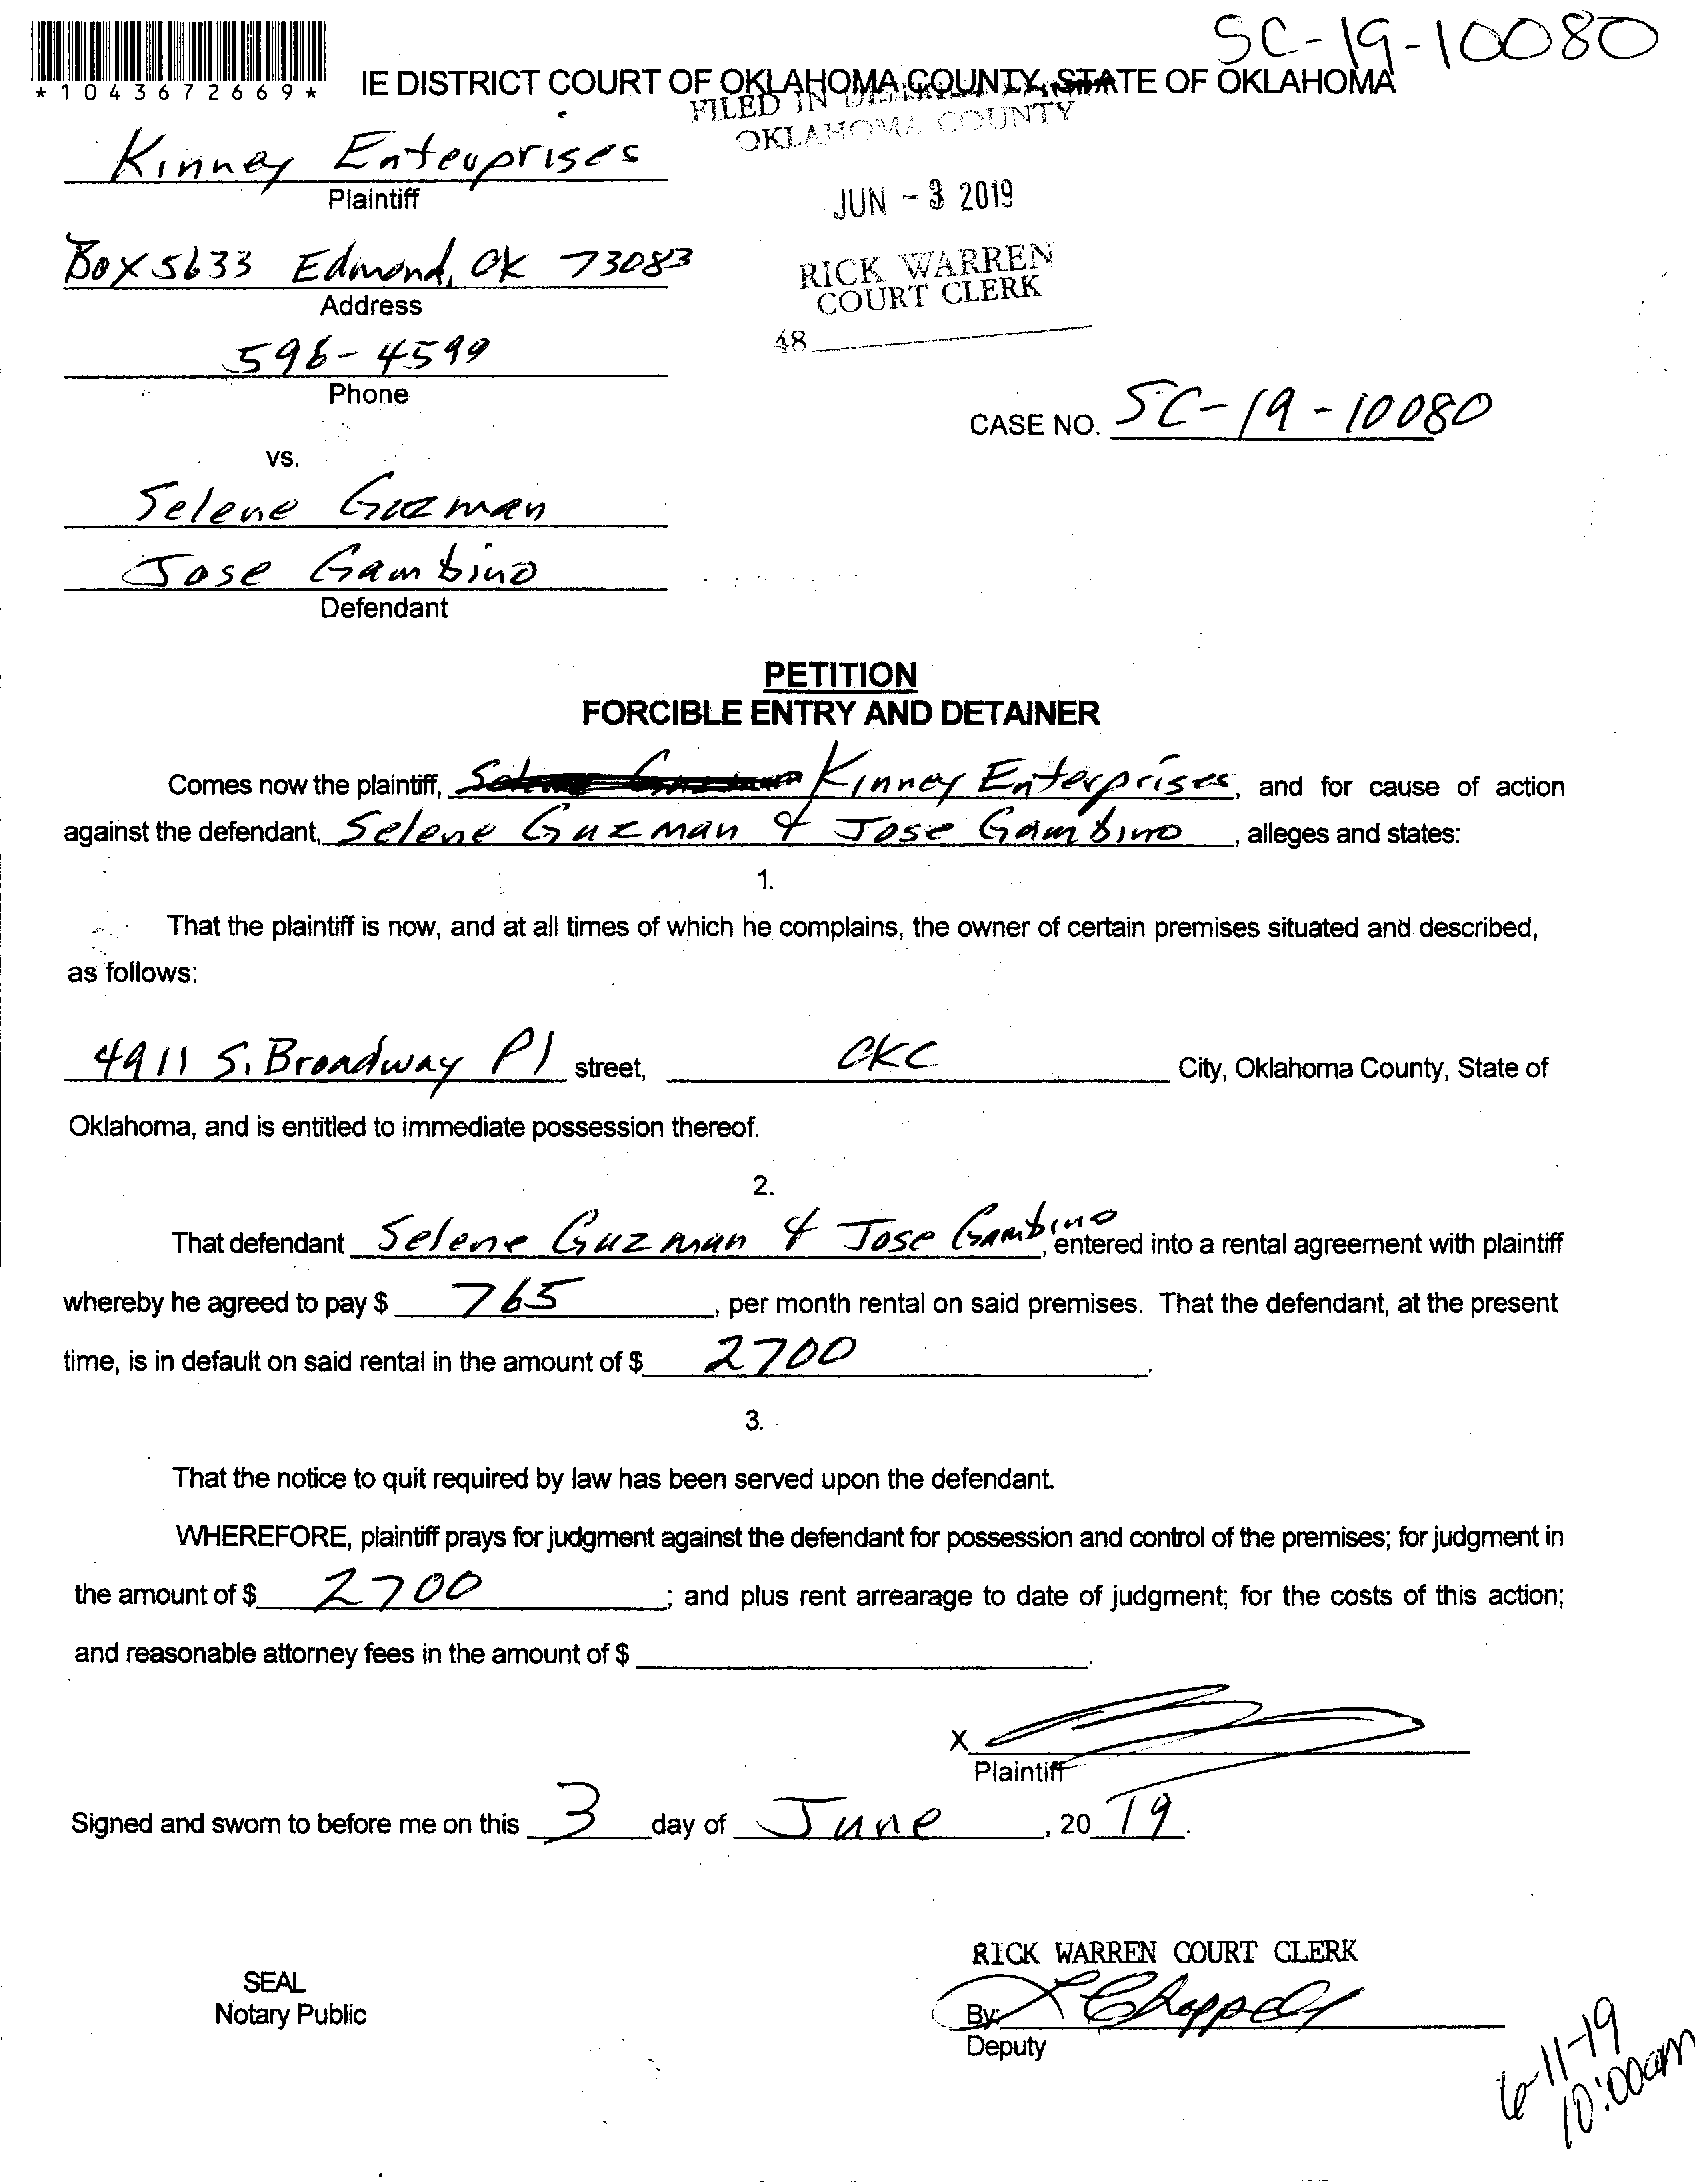 SC-19-10080
*1043672669*
IE DISTRICT COURT OF OKLAHOMA COUNTY, STATE OF OKLAHOMA
FILED IN
OKLAHOMA COUNTY
Kinney Enterprises
Plaintiff
JUN - 3 2019
Box 5633 Edmond, OK 73083
Address
RICK WARREN
COURT CLERK
596-4599
48
Phone
CASE NO. SC-19-10080
vs.
Selene Guzman
Jose Gambino
Defendant
PETITION
FORCIBLE ENTRY AND DETAINER
Comes now the plaintiff, Kinney Enterprises, and for cause of action
against the defendant, Selene Guzman & Jose Gambino, alleges and states:
1.
That the plaintiff is now, and at all times of which he complains, the owner of certain premises situated and described,
as follows:
4911 S. Broadway Pl street, OKC City, Oklahoma County, State of
Oklahoma, and is entitled to immediate possession thereof.
2.
That defendant Selene Guzman & Jose Gambino, entered into a rental agreement with plaintiff
whereby he agreed to pay $ 765, per month rental on said premises. That the defendant, at the present
time, is in default on said rental in the amount of $ 2700.
3.
That the notice to quit required by law has been served upon the defendant.
WHEREFORE, plaintiff prays for judgment against the defendant for possession and control of the premises; for judgment in
the amount of $ 2700; and plus rent arrearage to date of judgment; for the costs of this action;
and reasonable attorney fees in the amount of $.
X
Plaintiff
Signed and sworn to before me on this 3 day of June, 20 19.
RICK WARREN COURT CLERK
SEAL
Notary Public
By:
Deputy
6-11-19
10:00am